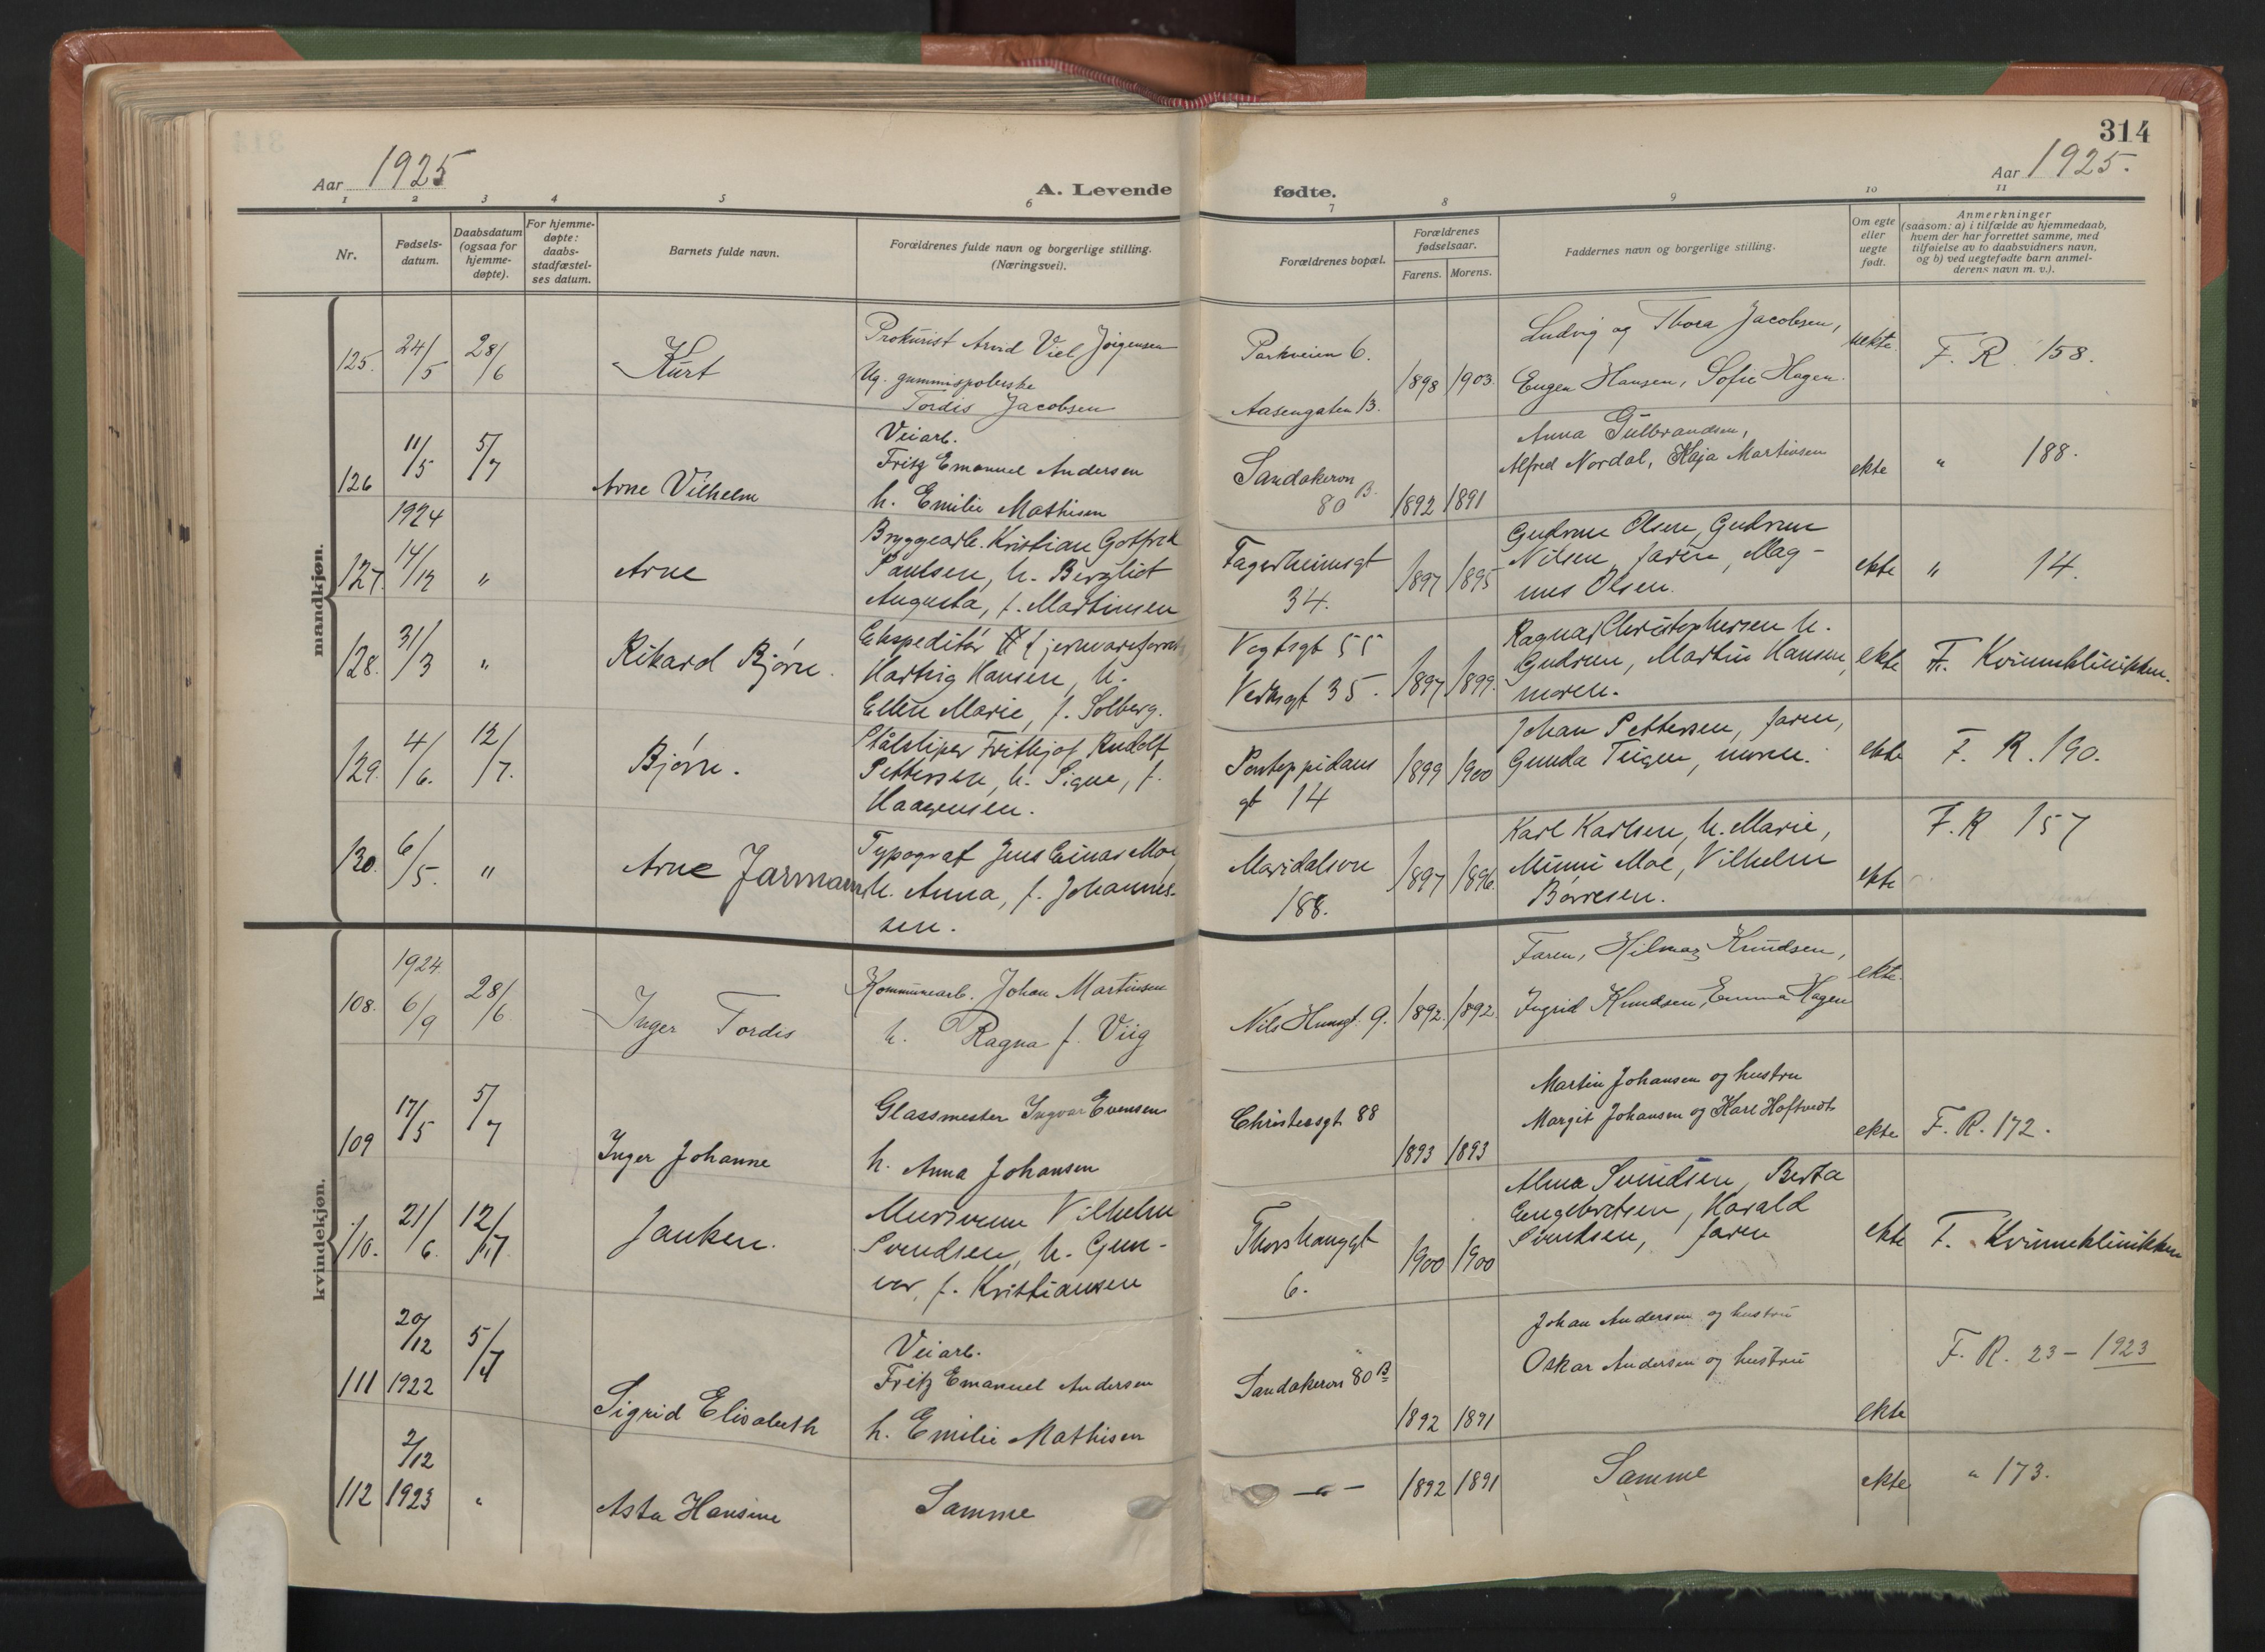 314
Aar 1925
A. Levende fødte.
Aar 1925.
1 2 3 4 5 6 7 8 9 10 11
Nr.
Fødsels-
datum.
Daabsdatum
(ogsaa for
hjemme-
døpte).
For hjemme-
døpte:
daabs-
stadfæstel-
ses datum.
Barnets fulde navn.
Forældrenes fulde navn og borgerlige stilling.
(Næringsvei).
Forældrenes bopæl.
Forældrenes
fødselsaar.
Farens. Morens.
Faddernes navn og borgerlige stilling.
Om egte
eller
uegte
født.
Anmerkninger
(saasom: a) i tilfælde av hjemmedaab,
hvem der har forrettet samme, med
tilføielse av to daabsvidners navn,
og b) ved uegtefødte barn anmel-
derens navn m. v.).
mandkjøn.
125. 24/5 28/6
Kurt
Prokurist Arvid Jørgensen
Ug.
Tordis Jacobsen
Parkveien 6.
Aasengaten 13.
1898 1903.
Ludvig og Thora Jacobsen,
Eugen Hansen, Sofie Hagen.
uekte.
F. R. 158.
126 11/5 5/7
Arne Vilhelm
Veiarb.
Fritz Emanuel Andersen
h. Emilie Mathisen
Sandakervn
80 B.
1892 1891
Anna Gulbrandsen,
Alfred Nordal, Kaja Martinsen
ekte
" 188.
1924
127. 14/12 "
Arne
Bryggearb. Kristian Gotfred
Paulsen, h. Bergliot
Augusta, f. Martinsen
Fagerheimsgt
34.
1897 1895
Gudrun Olsen, Gudrun
Nilsen, faren, Mag-
nus Olsen.
ekte
" 14.
128. 31/3 "
Rikard Bjørn.
Ekspeditør i jernvareforretn.
Hartvig Hansen, h.
Ellen Marie, f. Solberg.
Vogtsgt 55
Verksgt 35.
1897. 1899.
Ragnar Christophersen h.
Gudrun, Martin Hansen,
moren.
ekte
F. Kvinneklinikken.
129. 4/6. 12/7.
Bjørn.
Stålsliper Frithjof Rudolf
Pettersen, h. Signe, f.
Haagensen.
Pontoppidans
gt 14
1899 1900
Johan Pettersen, faren,
Gunda Teigen, moren.
ekte
F. R. 190.
130. 6/5. "
Arne Jarmann
Typograf Jens Einar Moe,
h. Anna, f. Johannes-
sen.
Maridalsvn
188.
1897 1896.
Karl Karlsen, h. Marie,
Minni Moe, Vilhelm
Børresen.
ekte
F. R 157
kvindekjøn.
1924.
108. 6/9 28/6
Inger Tordis
Kommunearb. Johan Martinsen
h. Ragna f. Viig
Nils Huusgt. 9.
1892. 1892.
Faren, Hilmar Knudsen,
Ingrid Knudsen, Emma Hagen
ekte.
109 17/5 5/7
Inger Johanne
Glassmester Ingvar Evensen
h. Anna Johansen
Christiesgt 88
1893 1893
Martin Johansen og hustru
Margit Johansen og Karl Hoftvedt
ekte
F. R. 172.
110. 21/6. 12/7.
Janken.
Mursvenn Vilhelm
Svendsen, h. Gun-
vor, f. Kristiansen
Thorshauggt
6.
1900 1900
Alma Svendsen, Berta
Engebretsen, Harald
Svendsen, faren
ekte
F. Kvinneklinikken
20/12 5/7
111 1922
Sigrid Elisabeth
Veiarb.
Fritz Emanuel Andersen
h. Emilie Mathisen
Sandakervn 80 B
1892 1891
Johan Andersen og hustru
Oskar Andersen og hustru
ekte
F. R. 23 - 1923
2/12
112 1923 "
Asta Hansine
Samme
— " —
1892 1891
Samme
ekte
" 173.